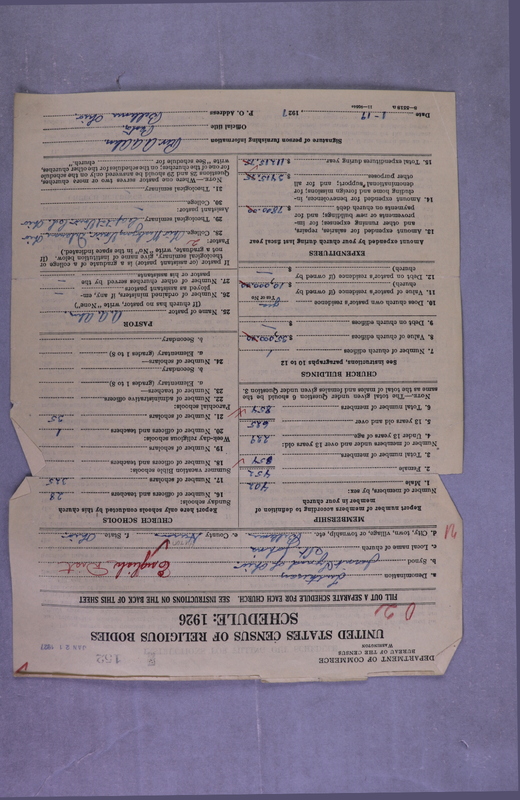 DEPARTMENT OF COMMERCE
BUREAU OF THE CENSUS
WASHINGTON
132
JAN 21 1927
UNITED STATES CENSUS OF RELIGIOUS BODIES
SCHEDULE: 1926
FILL OUT A SEPARATE SCHEDULE FOR EACH CHURCH. SEE INSTRUCTIONS ON THE BACK OF THIS SHEET
a. Denomination Lutheran
b. Synod Joint Synod of Ohio English Dist
c. Local name of church St. Johns
d. City, town, village, or township, etc. Bellevue e. County Huron f. State Ohio
MEMBERSHIP
Report number of members according to definition of member in your church
Number of members, by sex:
1. Male 402
2. Female 452
3. Total number of members 854
4. Under 13 years of age 229
5. 13 years old and over 625
6. Total number of members 854
NOTE.—The total given under Question 6 should be the same as the total of males and females given under Question 3.
CHURCH BUILDINGS
See instructions, paragraphs 10 to 12
7. Number of church edifices 1
8. Value of church edifices $ 50,000.00
9. Debt on church edifices $ —
10. Does church own pastor's residence yes
Yes or No
11. Value of pastor's residence (if owned by church) $ 10,000.00
12. Debt on pastor's residence (if owned by church) $ —
EXPENDITURES
Amount expended by your church during last fiscal year
13. Amount expended for salaries, repairs, and other running expenses; for improvements or new building; and for payments on church debt $ 7800.00
14. Amount expended for benevolences, including home and foreign missions; for denominational support; and for all other purposes $ 3415.75
15. Total expenditures during year $
CHURCH SCHOOLS
Report here only schools conducted by this church
Sunday schools:
16. Number of officers and teachers 28
17. Number of scholars 325
Summer vacation Bible schools:
18. Number of officers and teachers
19. Number of scholars
Week-day religious schools:
20. Number of officers and teachers 1
21. Number of scholars 35
Parochial schools:
22. Number of administrative officers
23. Number of teachers—
a. Elementary (grades 1 to 8)
b. Secondary
24. Number of scholars—
a. Elementary (grades 1 to 8)
b. Secondary
PASTOR
25. Name of pastor
(If church has no pastor, write "None")
26. Number of ordained ministers, if any, employed as assistant pastors
27. Number of other churches served by the pastor or his assistants
If pastor (or assistant) is a graduate of a college or theological seminary, give name of institution below. (If not a graduate, write "No" in the space indicated).
Pastor:
28. College
29. Theological seminary
Assistant pastor:
30. College
31. Theological seminary
NOTE.—Where one pastor serves two or more churches, Questions 28 and 29 should be answered only on the schedule for one of the churches; on the schedules for the other churches, write "See schedule for church."
Signature of person furnishing information
Official title Pastor
Date 1-19 1927 P. O. Address Bellevue Ohio